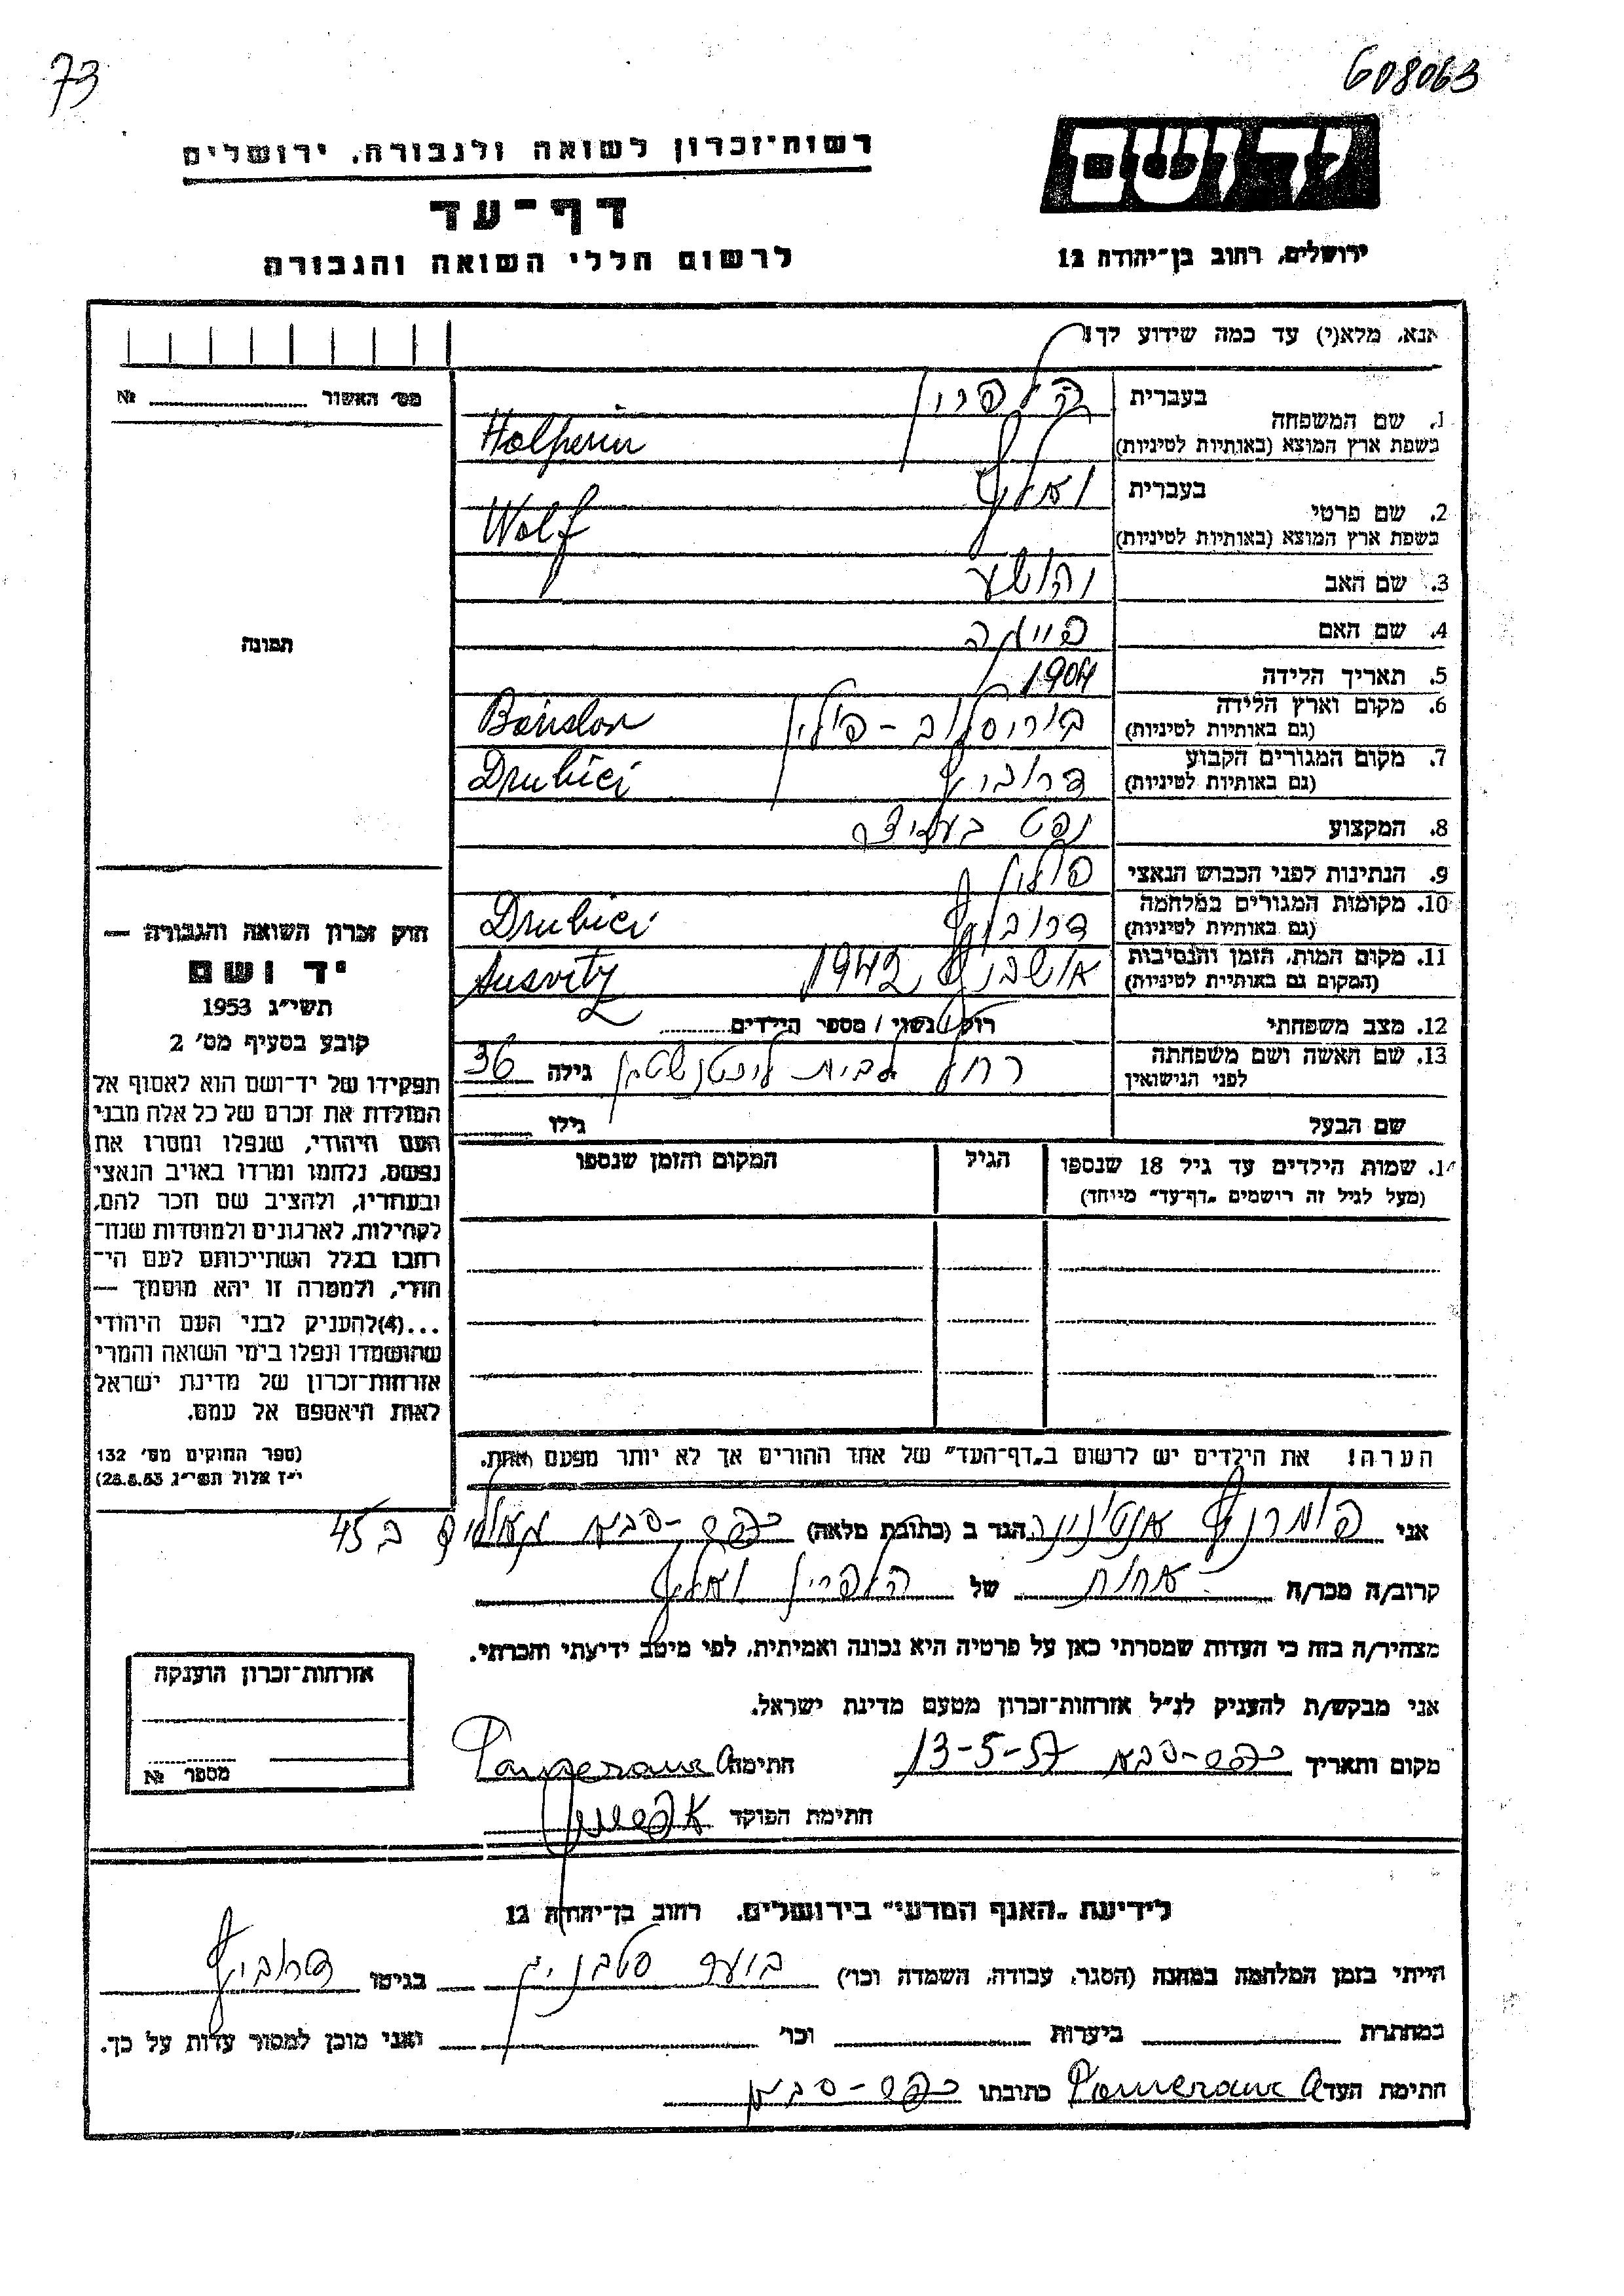 73
608063
יד ושם
רשות־זכרון לשואה ולגבורה, ירושלים
דף־עד
לרשום חללי השואה והגבורה
ירושלים, רחוב בן־יהודה 12
אנא, מלא(י) עד כמה שידוע לך!
מס' האשור № 
1. שם המשפחה בעברית הלפרין
בשפת ארץ המוצא (באותיות לטיניות) Halperin
2. שם פרטי בעברית וואלף
בשפת ארץ המוצא (באותיות לטיניות) Wolf
3. שם האב יהושע
4. שם האם
תמונה
5. תאריך הלידה 1904
6. מקום וארץ הלידה (גם באותיות לטיניות) בוריסלוב - פולין Borislov
7. מקום המגורים הקבוע (גם באותיות לטיניות) דרוביץ Drubici
8. המקצוע
9. הנתינות לפני הכבוש הנאצי פולין
10. מקומות המגורים במלחמה (גם באותיות לטיניות) דרוביץ Drubici
11. מקום המות, הזמן והנסיבות (המקום גם באותיות לטיניות) אושביץ 1942 Ausvitz
12. מצב משפחתי רווק / נשוי / מספר הילדים
13. שם האשה ושם משפחתה לפני הנישואין רחל לבית ליכטנשטיין גילה 36
שם הבעל גילו
14. שמות הילדים עד גיל 18 שנספו הגיל המקום והזמן שנספו
(מעל לגיל זה רושמים "דף־עד" מיוחד)
הערה! את הילדים יש לרשום ב"דף־העד" של אחד ההורים אך לא יותר מפעם אחת.
חוק זכרון השואה והגבורה —
יד ושם
תשי"ג 1953
קובע בסעיף מס' 2
תפקידו של יד־ושם הוא לאסוף אל
המולדת את זכרם של כל אלה מבני
העם היהודי, שנפלו ומסרו את
נפשם, נלחמו ומרדו באויב הנאצי
ובעוזריו, ולהציב שם וזכר להם,
לקהילות, לארגונים ולמוסדות שנח־
רבו בגלל השתייכותם לעם הי־
הודי, ולמטרה זו יהא מוסמך —
...(4)להעניק לבני העם היהודי
שהושמדו ונפלו בימי השואה והמרי
אזרחות־זכרון של מדינת ישראל
לאות היאספם אל עמם.
(ספר החוקים מס' 132
י"ז אלול תשי"ג 28.8.53)
אני פומרנץ אנטונינה הגר ב (כתובת מלאה) כפר-סבא ב 45
קרוב/ה מכר/ה אחות של הלפרין וואלף
מצהיר/ה בזה כי העדות שמסרתי כאן על פרטיה היא נכונה ואמיתית, לפי מיטב ידיעתי והכרתי.
אני מבקש/ת להעניק לנ"ל אזרחות־זכרון מטעם מדינת ישראל.
מקום ותאריך כפר-סבא 13-5-57 חתימה Pomeranc A
חתימת הפוקד
אזרחות־זכרון הוענקה
מספר №
לידיעת "האגף המדעי" בירושלים, רחוב בן־יהודה 12
הייתי בזמן המלחמה במחנה (הסגר, עבודה, השמדה וכו') בגיטו דרוביץ
במחתרת ביערות וכו' ואני מוכן למסור עדות על כך.
חתימת העד Pomeranc A כתובתו כפר-סבא